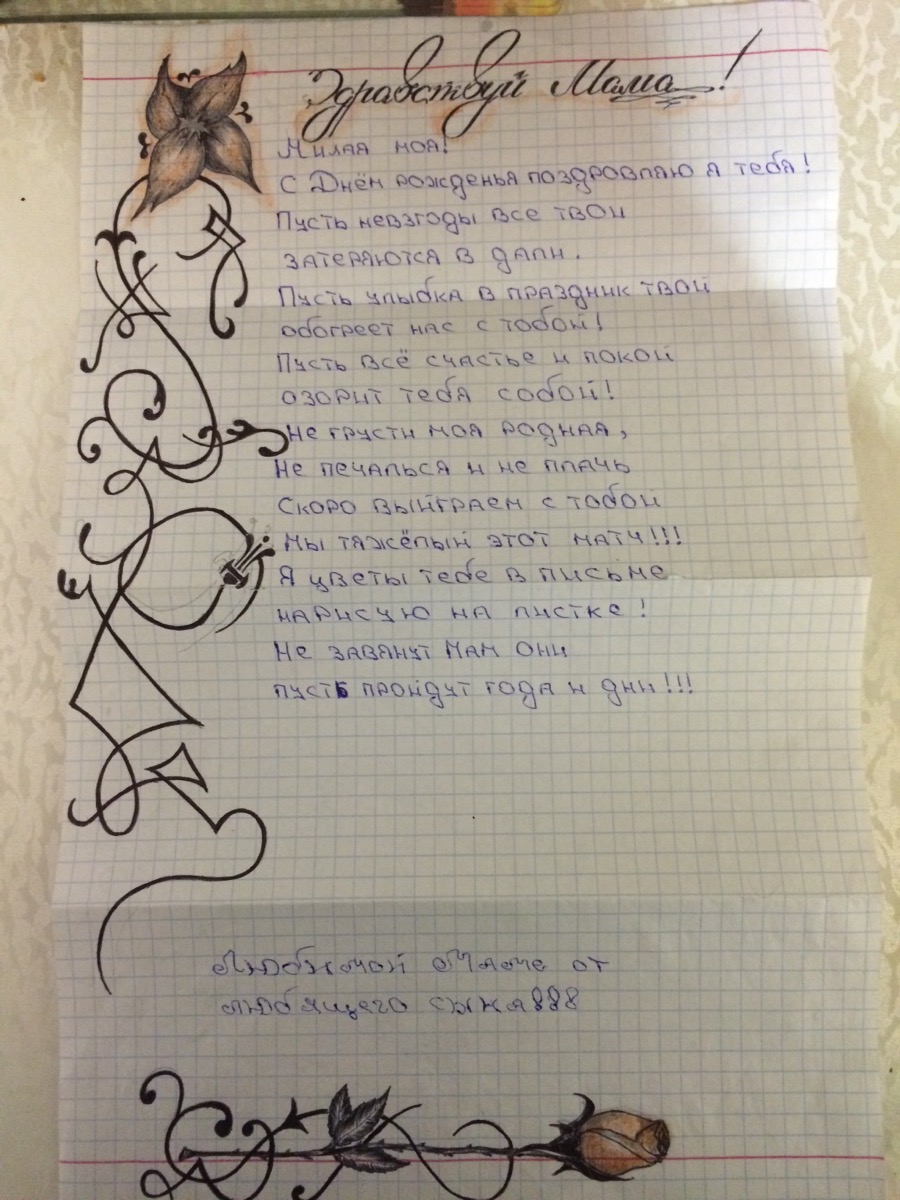 Здравствуй Мама!
Милая моя!
С Днём рожденья поздровляю я тебя!
Пусть невзгоды все твои
затеряются в дали.
Пусть улыбка в праздник твой
обогреет нас с тобой!
Пусть всё счастье и покой
озорит тебя собой!
Не грусти моя родная,
Не печалься и не плачь
Скоро выйграем с тобой
Мы тяжёлый этот матч!!!
Я цветы тебе в письме
нарисую на листке!
Не завянут мам они
пусть пройдут года и дни!!!
Любимой Маме от
любящего сына